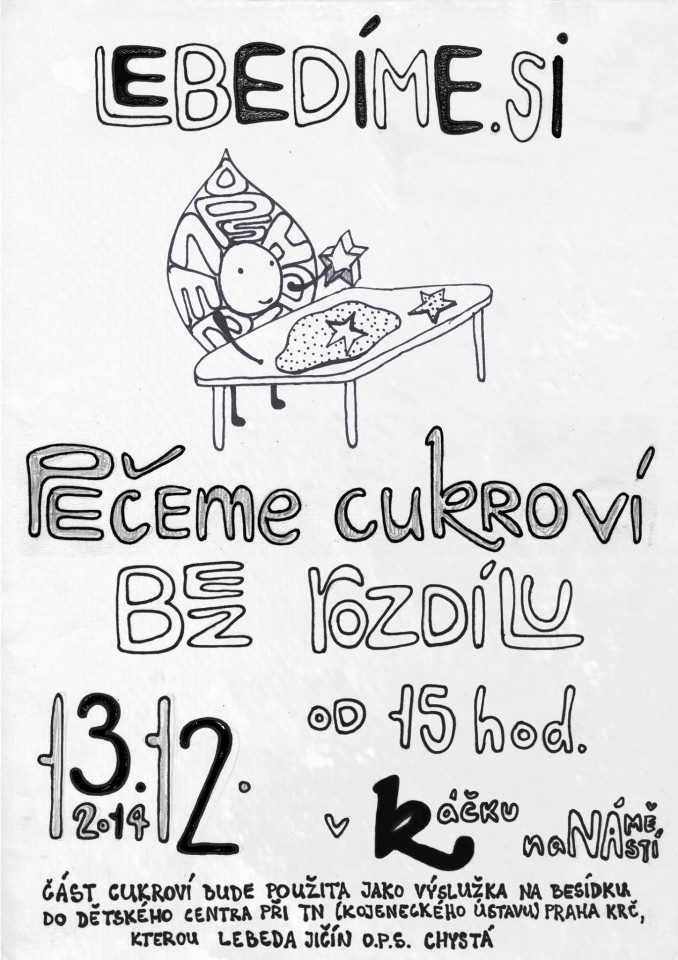 LEBEDÍME.SI
PEČEME CUKROVÍ
BEZ ROZDÍLU
13.12.
2014
OD 15 hod.
v Káčku
na NÁMĚSTÍ
ČÁST CUKROVÍ BUDE POUŽITA JAKO VÝSLUŽKA NA BESÍDKU
DO DĚTSKÉHO CENTRA PŘI TN (KOJENECKÉHO ÚSTAVU) PRAHA KRČ,
KTEROU LEBEDA JIČÍN O.P.S. CHYSTÁ